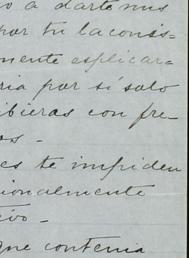 o a darte mis
por tu la consis-
mente esplicar-
ria por sí solo
ibieras con fre-
os.-
es te impiden
ionalmente
tivo-
que contenia